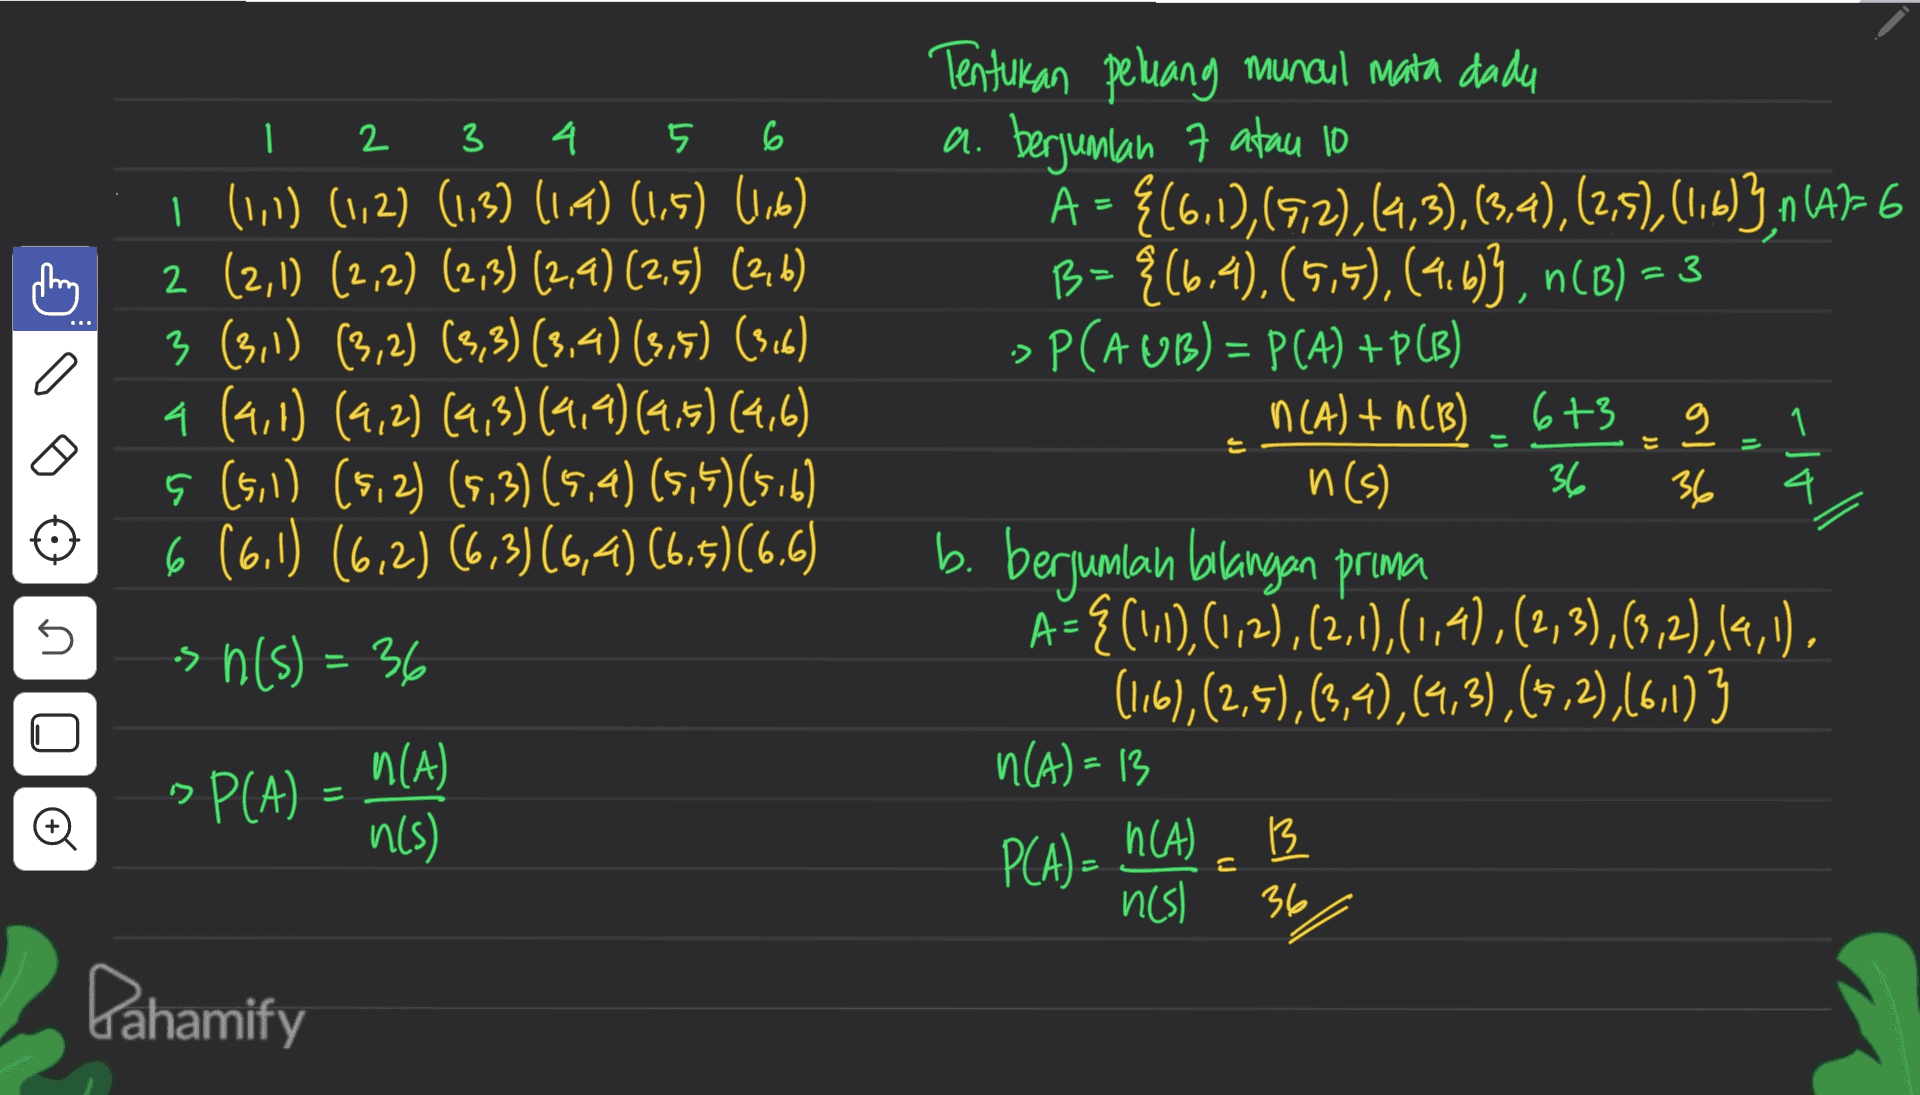 1 2 3 4 5 6
1 (1,1) (1,2) (1,3) (1,4) (1,5) (1,6)
2 (2,1) (2,2) (2,3) (2,4) (2,5) (2,6)
3 (3,1) (3,2) (3,3) (3,4) (3,5) (3,6)
4 (4,1) (4,2) (4,3) (4,4) (4,5) (4,6)
5 (5,1) (5,2) (5,3) (5,4) (5,5) (5,6)
6 (6,1) (6,2) (6,3) (6,4) (6,5) (6,6)
→ n(S) = 36
→ P(A) = n(A)/n(S)
Tentukan peluang muncul mata dadu
a. berjumlah 7 atau 10
A = {(6,1),(5,2),(4,3),(3,4),(2,5),(1,6)}, n(A) = 6
B = {(6,4),(5,5),(4,6)}, n(B) = 3
→ P(A∪B) = P(A) + P(B)
= n(A) + n(B)/n(S) = 6+3/36 = 9/36 = 1/4
b. berjumlah bilangan prima
A = {(1,1),(1,2),(2,1),(1,4),(2,3),(3,2),(4,1),
(1,6),(2,5),(3,4),(4,3),(5,2),(6,1)}
n(A) = 13
P(A) = n(A)/n(S) = 13/36
Pahamify